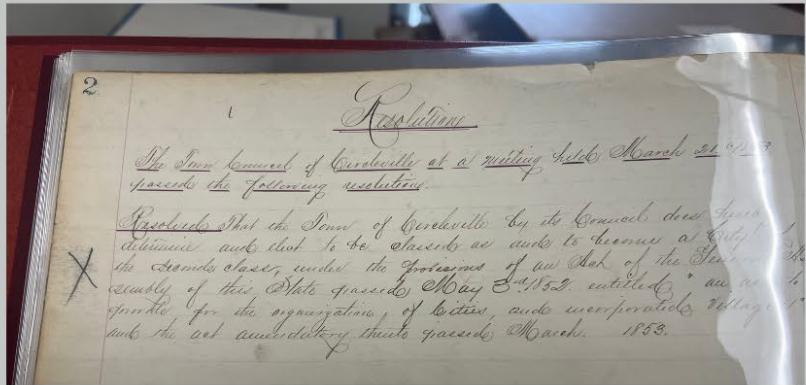 2
Resolutions
The Town Council of Circleville at a meeting held March 21
passed the following resolutions.
Resolved That the Town of Circleville by its Council does
determine and elect to be classed as and to become a City
the second class, under the provisions of an Act of the
sembly of this State passed May 3rd 1852. entitled, "an
provide, for the organization, of Cities, and incorporated Village
and the act amendatory thereto passed March. 1853.
X